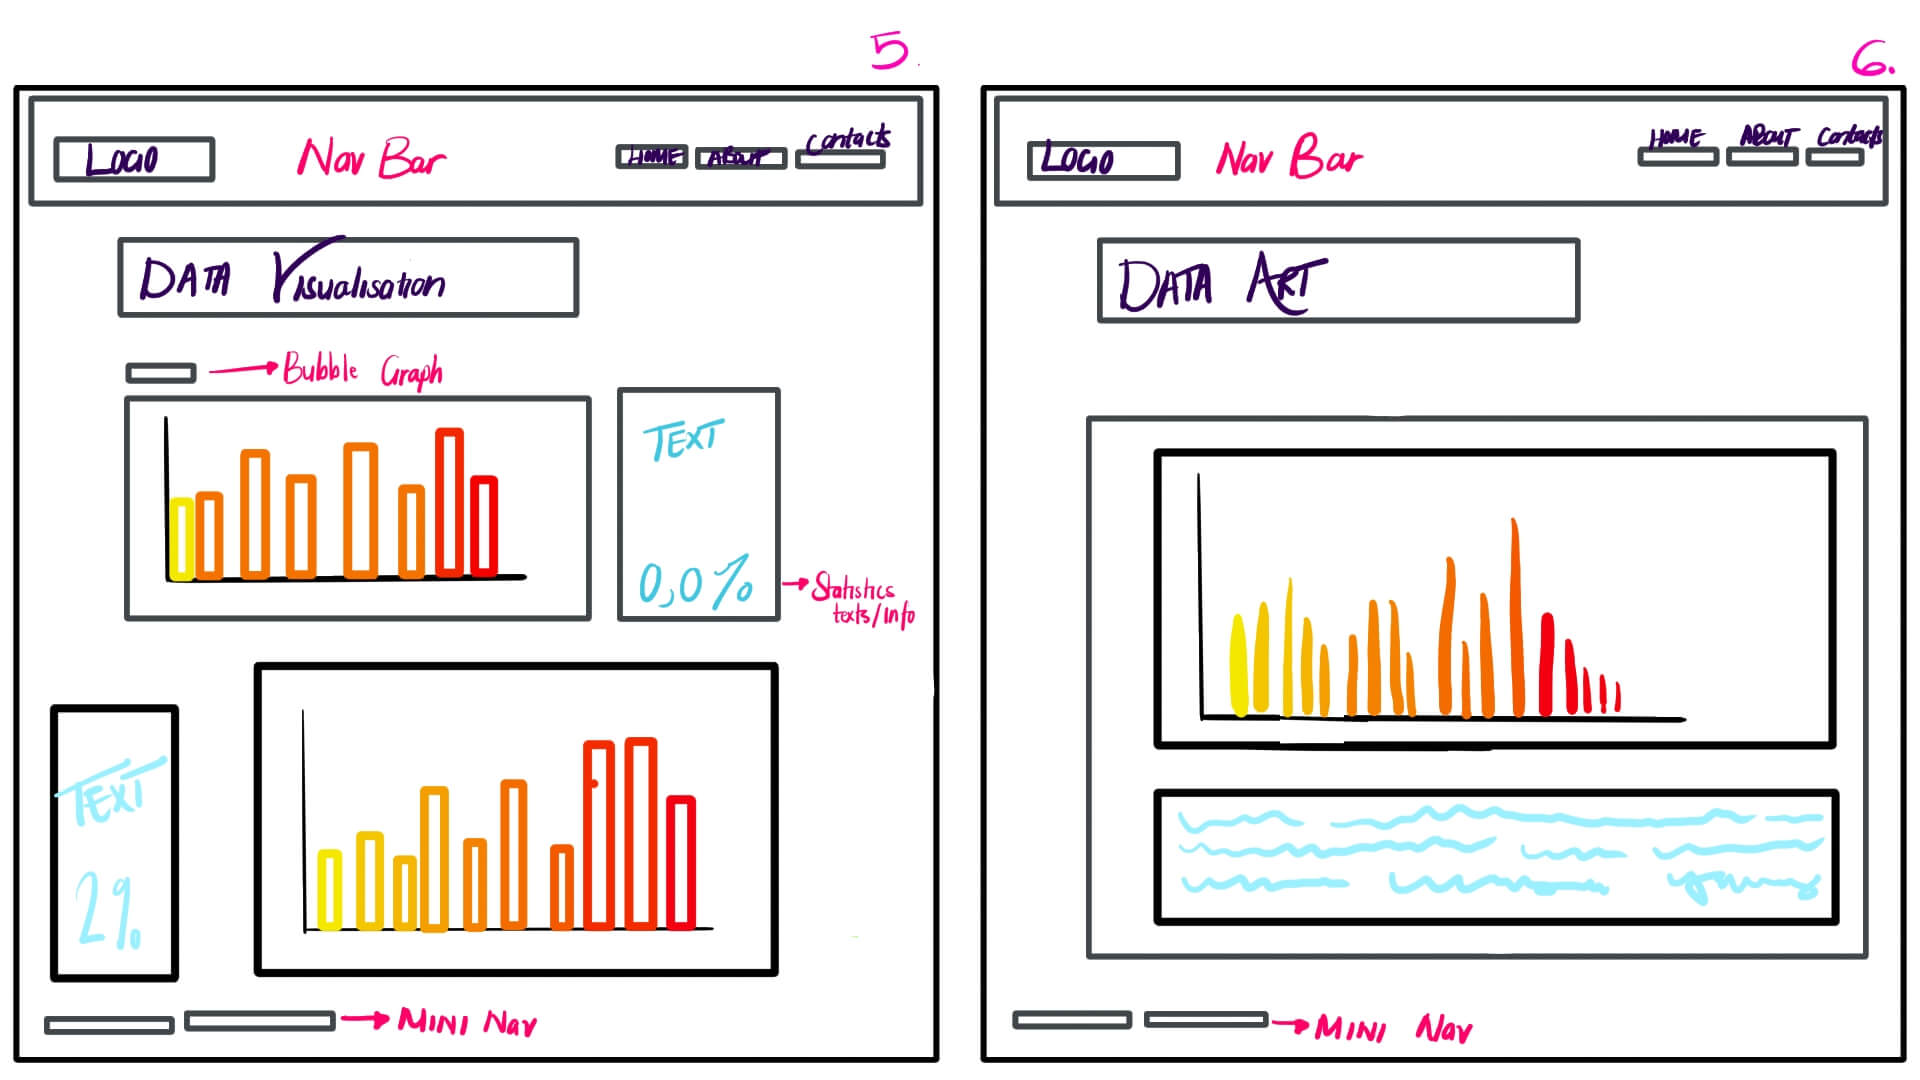 5.
LOGO
Nav Bar
HOME
ABOUT
Contacts
DATA Visualisation
Bubble Graph
TEXT
0,0%
Statistics
texts/info
TEXT
2%
MINI Nav
6.
LOGO
Nav Bar
HOME
ABOUT
Contacts
DATA ART
MINI Nav